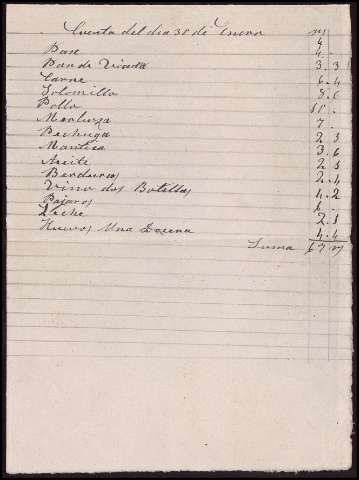 Cuenta del dia 30 de Enero
Pan de Vianda 3.3
Carne 6.4
Solomillo
Pollo
Merluza 7.
Pechuga 2.3
Manteca 3.6
Aceite 2.3
Berduras 2.4
Vino dos Botellas 4.2
Pajaros
Leche 2.1
Huevos Una Docena 4.4
Suma 67